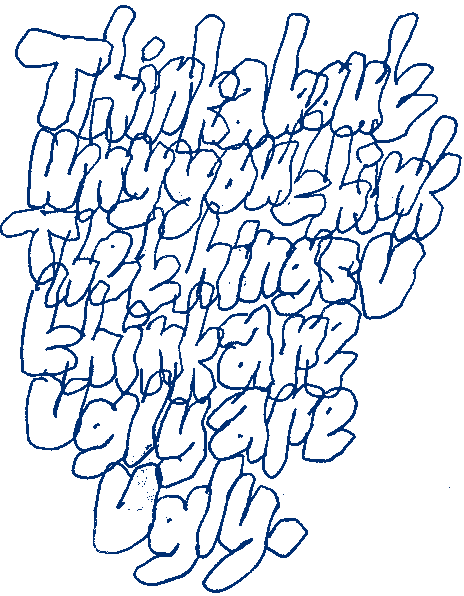 Think about
why you think
The things U
think are
Ugly are
Ugly.